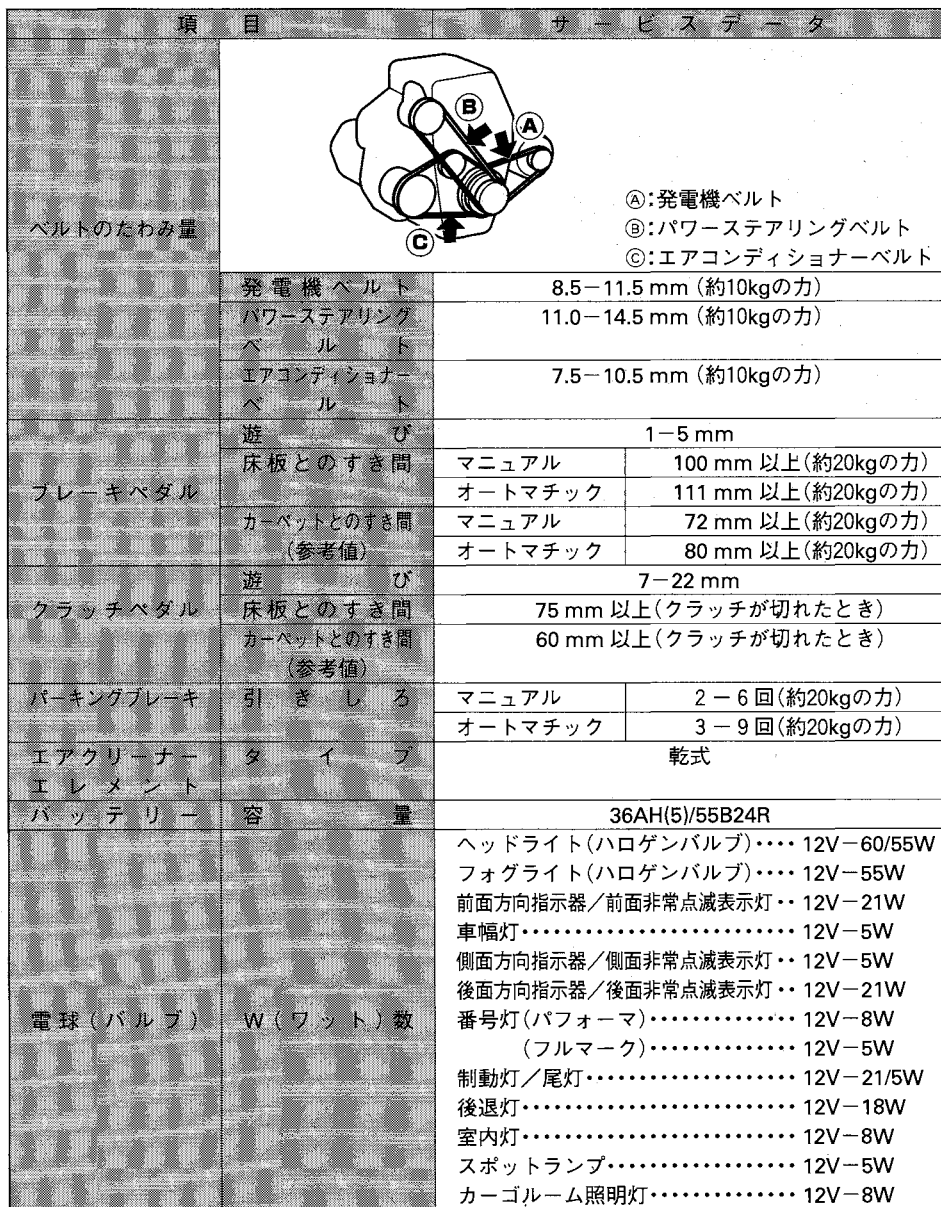 項目 サービスデータ
Ⓑ
Ⓐ
Ⓒ
Ⓐ:発電機ベルト
Ⓑ:パワーステアリングベルト
Ⓒ:エアコンディショナーベルト
ベルトのたわみ量
発電機ベルト 8.5－11.5 mm (約10kgの力)
パワーステアリング 11.0－14.5 mm (約10kgの力)
ベルト
エアコンディショナー 7.5－10.5 mm (約10kgの力)
ベルト
ブレーキペダル
遊び 1－5 mm
床板とのすき間 マニュアル 100 mm 以上(約20kgの力)
オートマチック 111 mm 以上(約20kgの力)
カーペットとのすき間 マニュアル 72 mm 以上(約20kgの力)
(参考値) オートマチック 80 mm 以上(約20kgの力)
クラッチペダル
遊び 7－22 mm
床板とのすき間 75 mm 以上(クラッチが切れたとき)
カーペットとのすき間 60 mm 以上(クラッチが切れたとき)
(参考値)
パーキングブレーキ 引きしろ マニュアル 2－6回(約20kgの力)
オートマチック 3－9回(約20kgの力)
エアクリーナー タイプ 乾式
エレメント
バッテリー 容量 36AH(5)/55B24R
電球(バルブ) W(ワット)数
ヘッドライト(ハロゲンバルブ)････ 12V－60/55W
フォグライト(ハロゲンバルブ)････ 12V－55W
前面方向指示器／前面非常点滅表示灯･･ 12V－21W
車幅灯･･････････････････････････ 12V－5W
側面方向指示器／側面非常点滅表示灯･･ 12V－5W
後面方向指示器／後面非常点滅表示灯･･ 12V－21W
番号灯(パフォーマ)･･････････････ 12V－8W
(フルマーク)･･････････････ 12V－5W
制動灯／尾灯････････････････････ 12V－21/5W
後退灯･･････････････････････････ 12V－18W
室内灯･･････････････････････････ 12V－8W
スポットランプ･･････････････････ 12V－5W
カーゴルーム照明灯･･････････････ 12V－8W